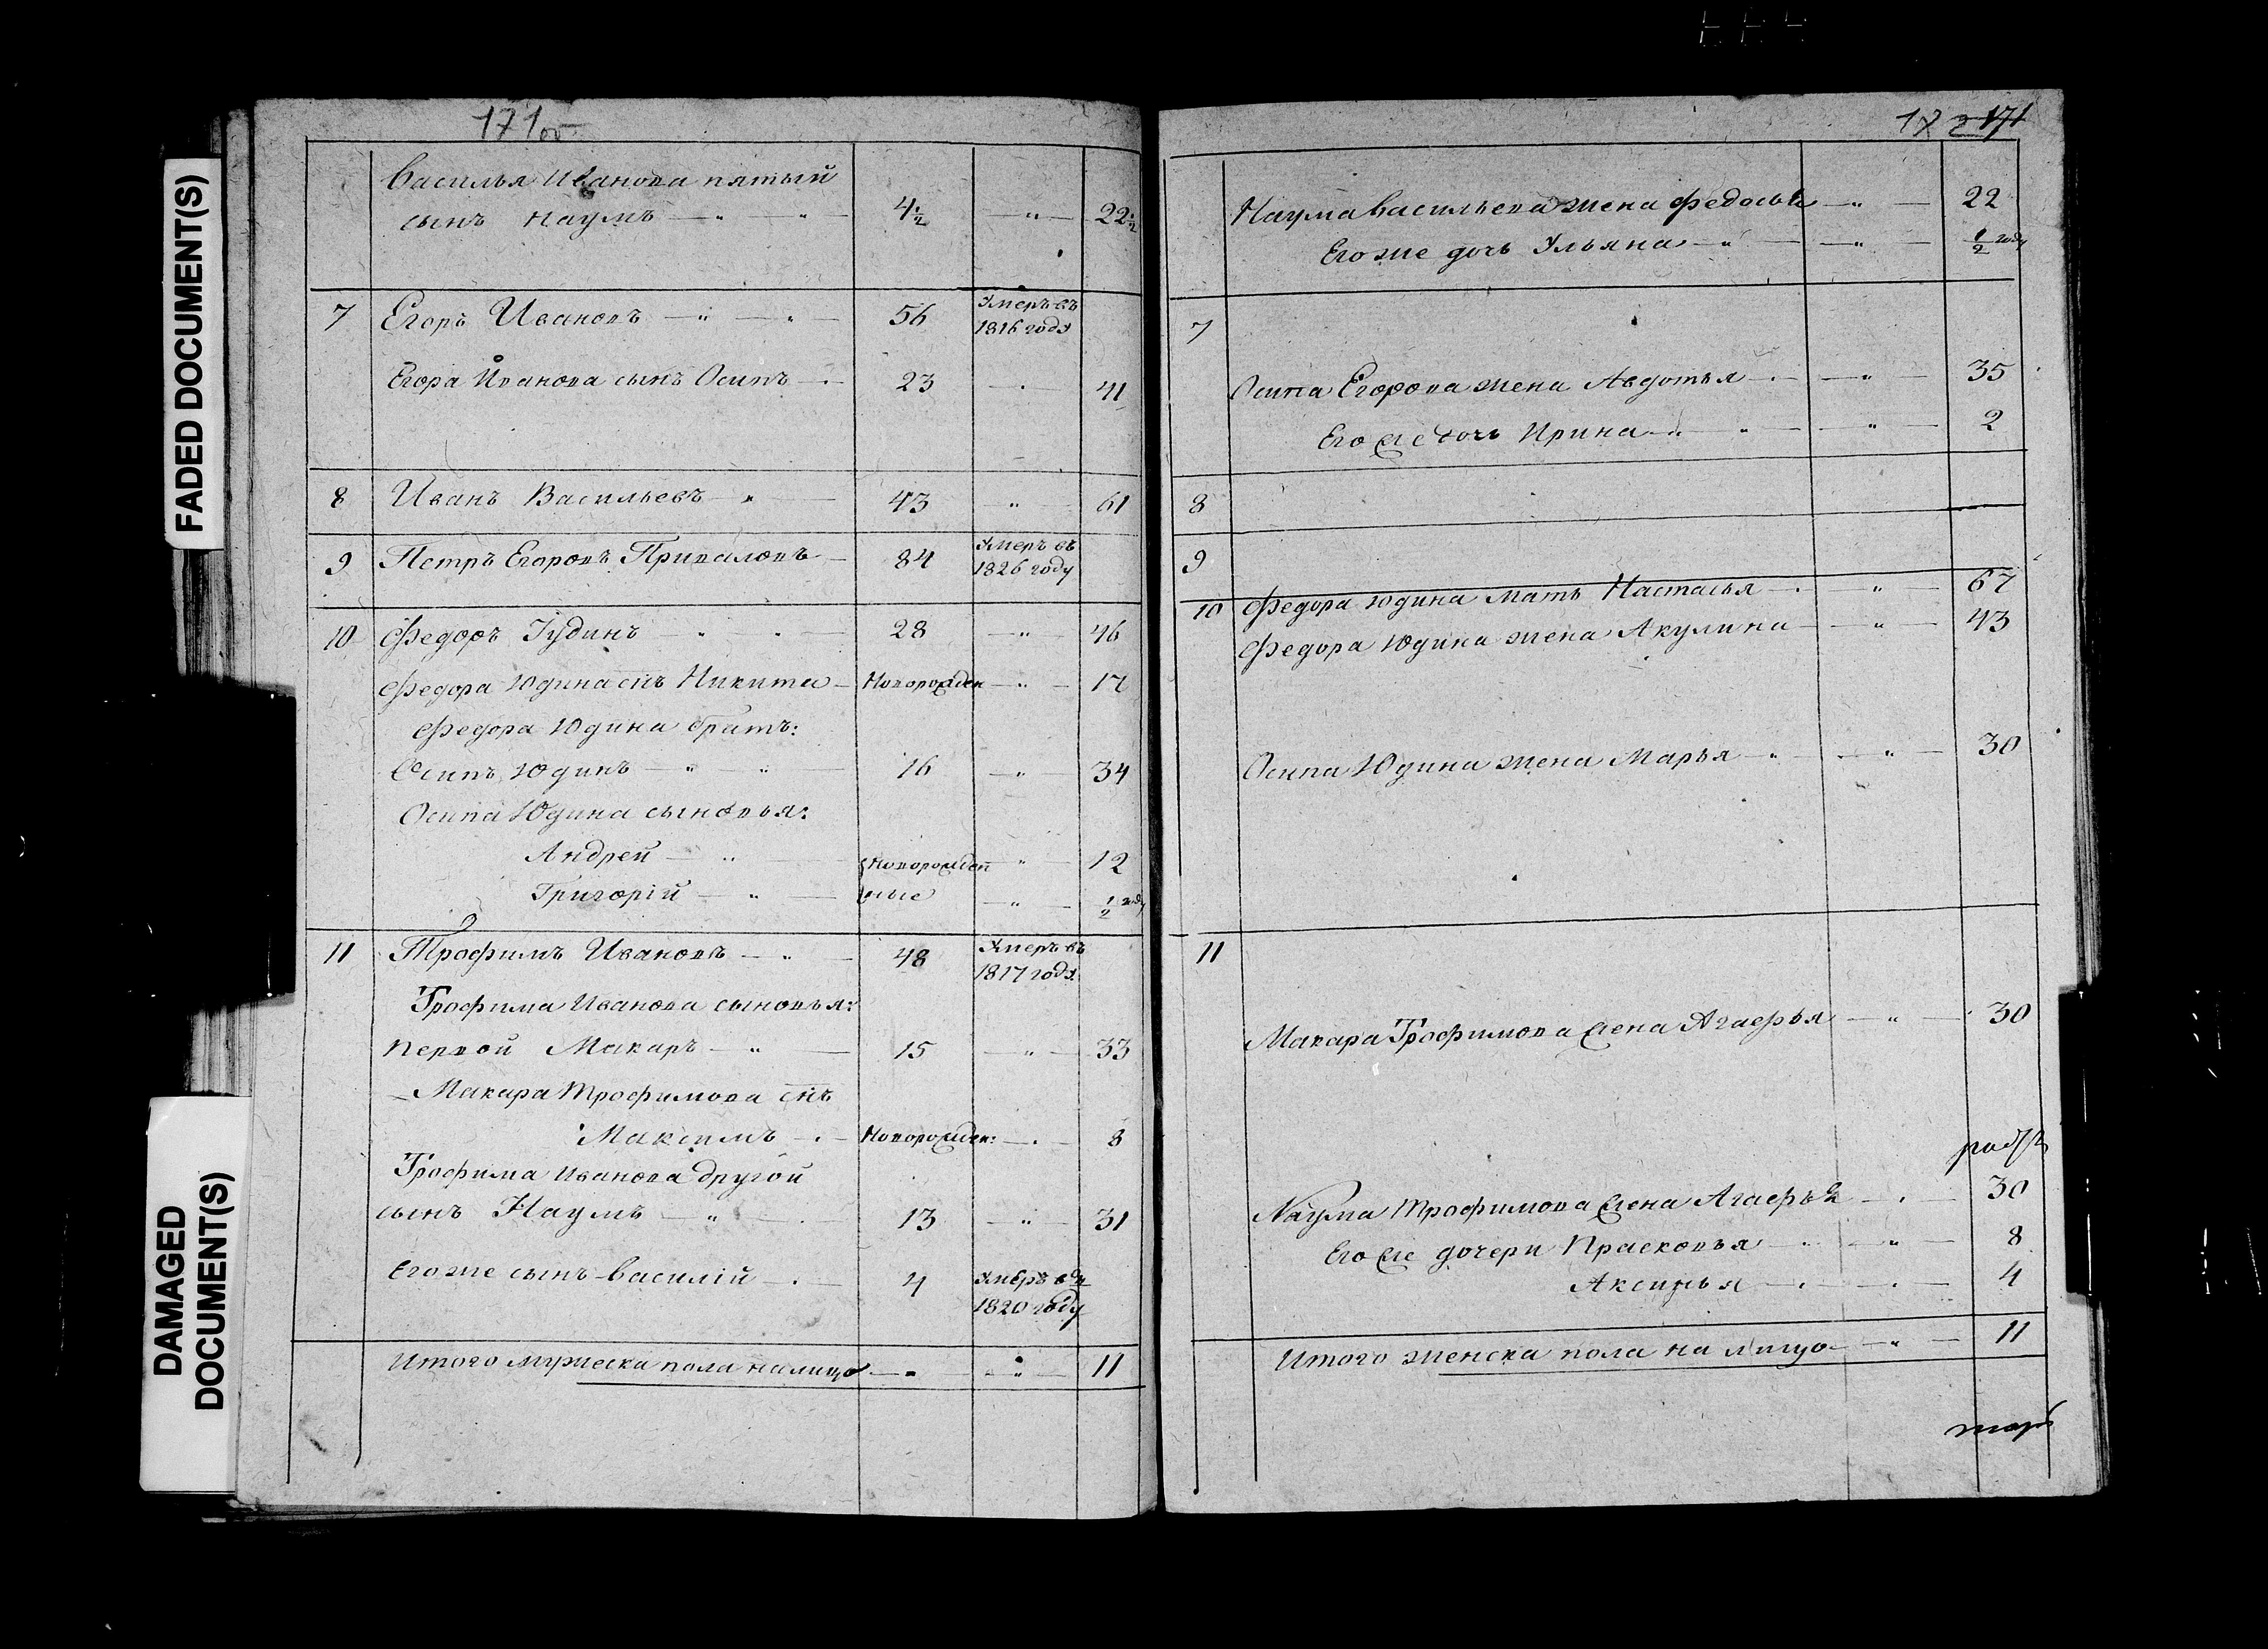 FADED DOCUMENT(S)
DAMAGED
DOCUMENT(S)
171об
Василья Иванова пятый
сынъ Наумъ — " — " — 4½ — " — 22½
7 Егоръ Ивановъ — " — " — 56 Умеръ въ
1816 году
Егора Иванова сынъ Осипъ — 23 — " — 41
8 Иванъ Васильевъ — " — 43 " 61
9 Петръ Егоровъ Приваловъ — 84 Умеръ въ
1826 году
10 Федоръ Іудинъ " — " — 28 — " — 46
Федора Юдина снъ Никита — Новорожден — " — 17
Федора Юдина братъ:
Осипъ Юдинъ — " — " — 16 — " — 34
Осипа Юдина сыновья:
Андрей — " — Новорожден — " — 12
Григорій — " — ные — " — ½ году
11 Трофимъ Ивановъ — " — 48 Умеръ въ
1817 году
Трофима Иванова сыновья:
Первой Макаръ — " — 15 — " — 33
Макара Трофимова снъ
Максимъ — Новорожден: — 8
Трофима Иванова другой
сынъ Наумъ — " — 13 — " — 31
Его же сынъ Василій — 4 Умеръ въ
1820 году
Итого мужеска пола налицо — " — " — 11
172 171
Наума Васильева жена Федосья — " — 22
Его же дочь Ульяна — " — " — ½ году
7
Осипа Егорова жена Авдотья — " — 35
Его же дочь Ирина — " — " — 2
8
9
10 Федора Юдина мать Настасья — " — 67
Федора Юдина жена Акулина — " — 43
Осипа Юдина жена Марья — " — " — 30
11
Макара Трофимова жена Агафья — " — 30
Наума Трофимова жена Агафья — 30
Его же дочери Прасковья — " — 8
Аксинья — 4
Итого женска пола на лицо — " — 11